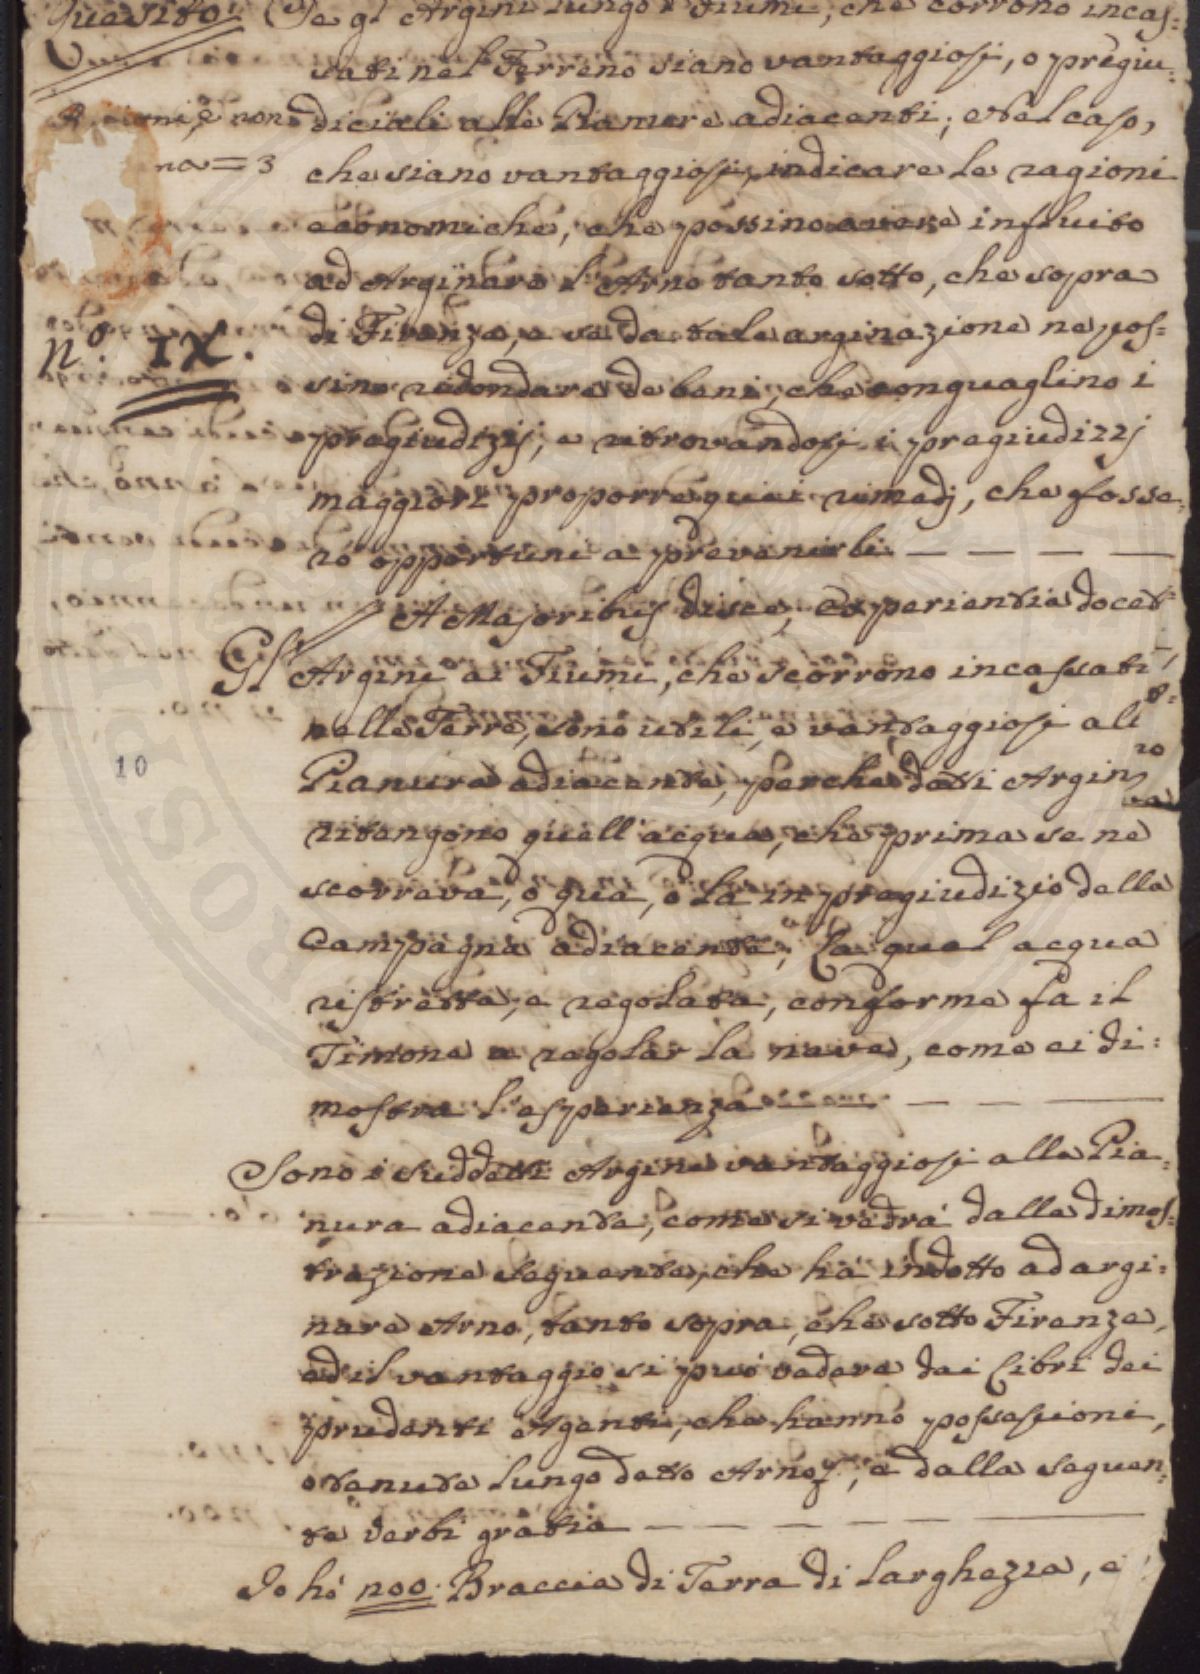 Quesito. Se gl'Argini lungo i Fiumi, che corrono incas=
sati nel Terreno siano vantaggiosi, o pregiu=
diciali alle Pianure adiacenti; e nel caso,
che siano vantaggiosi, indicare le ragioni
economiche, che possino avere influito
ad Arginare l'Arno tanto sotto, che sopra
di Firenze, e se da tale arginazione ne pos=
sino ridondare de beni, che conguaglino i
pregiudizij, e ritrovandosi i pregiudizzj
maggiori proporre quei rimedj, che fosse=
ro opportuni a prevenirli — — — —
è non
na = 3
n.° IX.
A Majoribus disce, Experientia docet
Gl'Argini ai Fiumi, che scorrono incassati
nelle Terre, sono utili, e vantaggiosi all
Pianura adiacente, perche detti Argin
ritengono quell'acqua, che prima se ne
scorreva, o quà, o là in pregiudizio della
Campagna adiacente; La qual acqua
ristretta, e regolata, conforme fa il
Timone a regolar la nave, come ci di=
mostra l'esperienza — — — —
10
Sono i suddetti Argini vantaggiosi alla Pia=
nura adiacente, come si vedrà dalla dimos=
trazione seguente, che hà indotto ad argi=
nare Arno, tanto sopra, che sotto Firenze,
ed il vantaggio si può vedere dai Libri dei
prudenti Agenti, che hanno possessioni,
o tenute lungo detto Arno, e dalla seguen=
te verbi gratia — — — — —
Io hò 200. Braccia di Terra di Larghezza, e